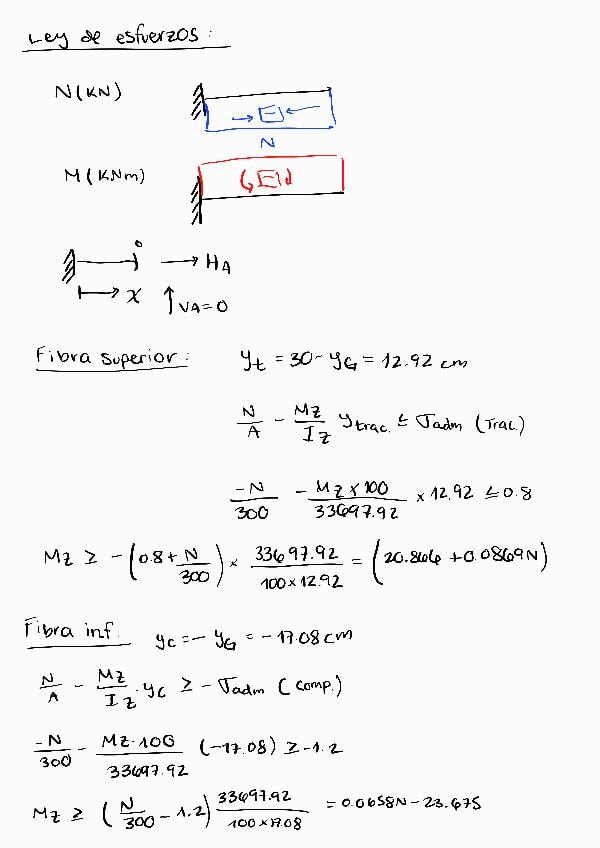 Ley de esfuerzos:
N(KN)
N
M(KNm)
HA
x VA=0
Fibra superior: yt = 30 - yG = 12.92 cm
N/A - Mz/Iz ytrac. ≤ σadm (Trac.)
-N/300 - Mz x 100/33697.92 x 12.92 ≤ 0.8
Mz ≥ -(0.8 + N/300) x 33697.92/100x12.92 = (20.866 + 0.0869N)
Fibra inf. yc = - yG = -17.08 cm
N/A - Mz/Iz · yc ≥ - σadm (comp.)
-N/300 - Mz·100/33697.92 (-17.08) ≥ -1.2
Mz ≥ (N/300 - 1.2) 33697.92/100x17.08 = 0.0658N - 23.675